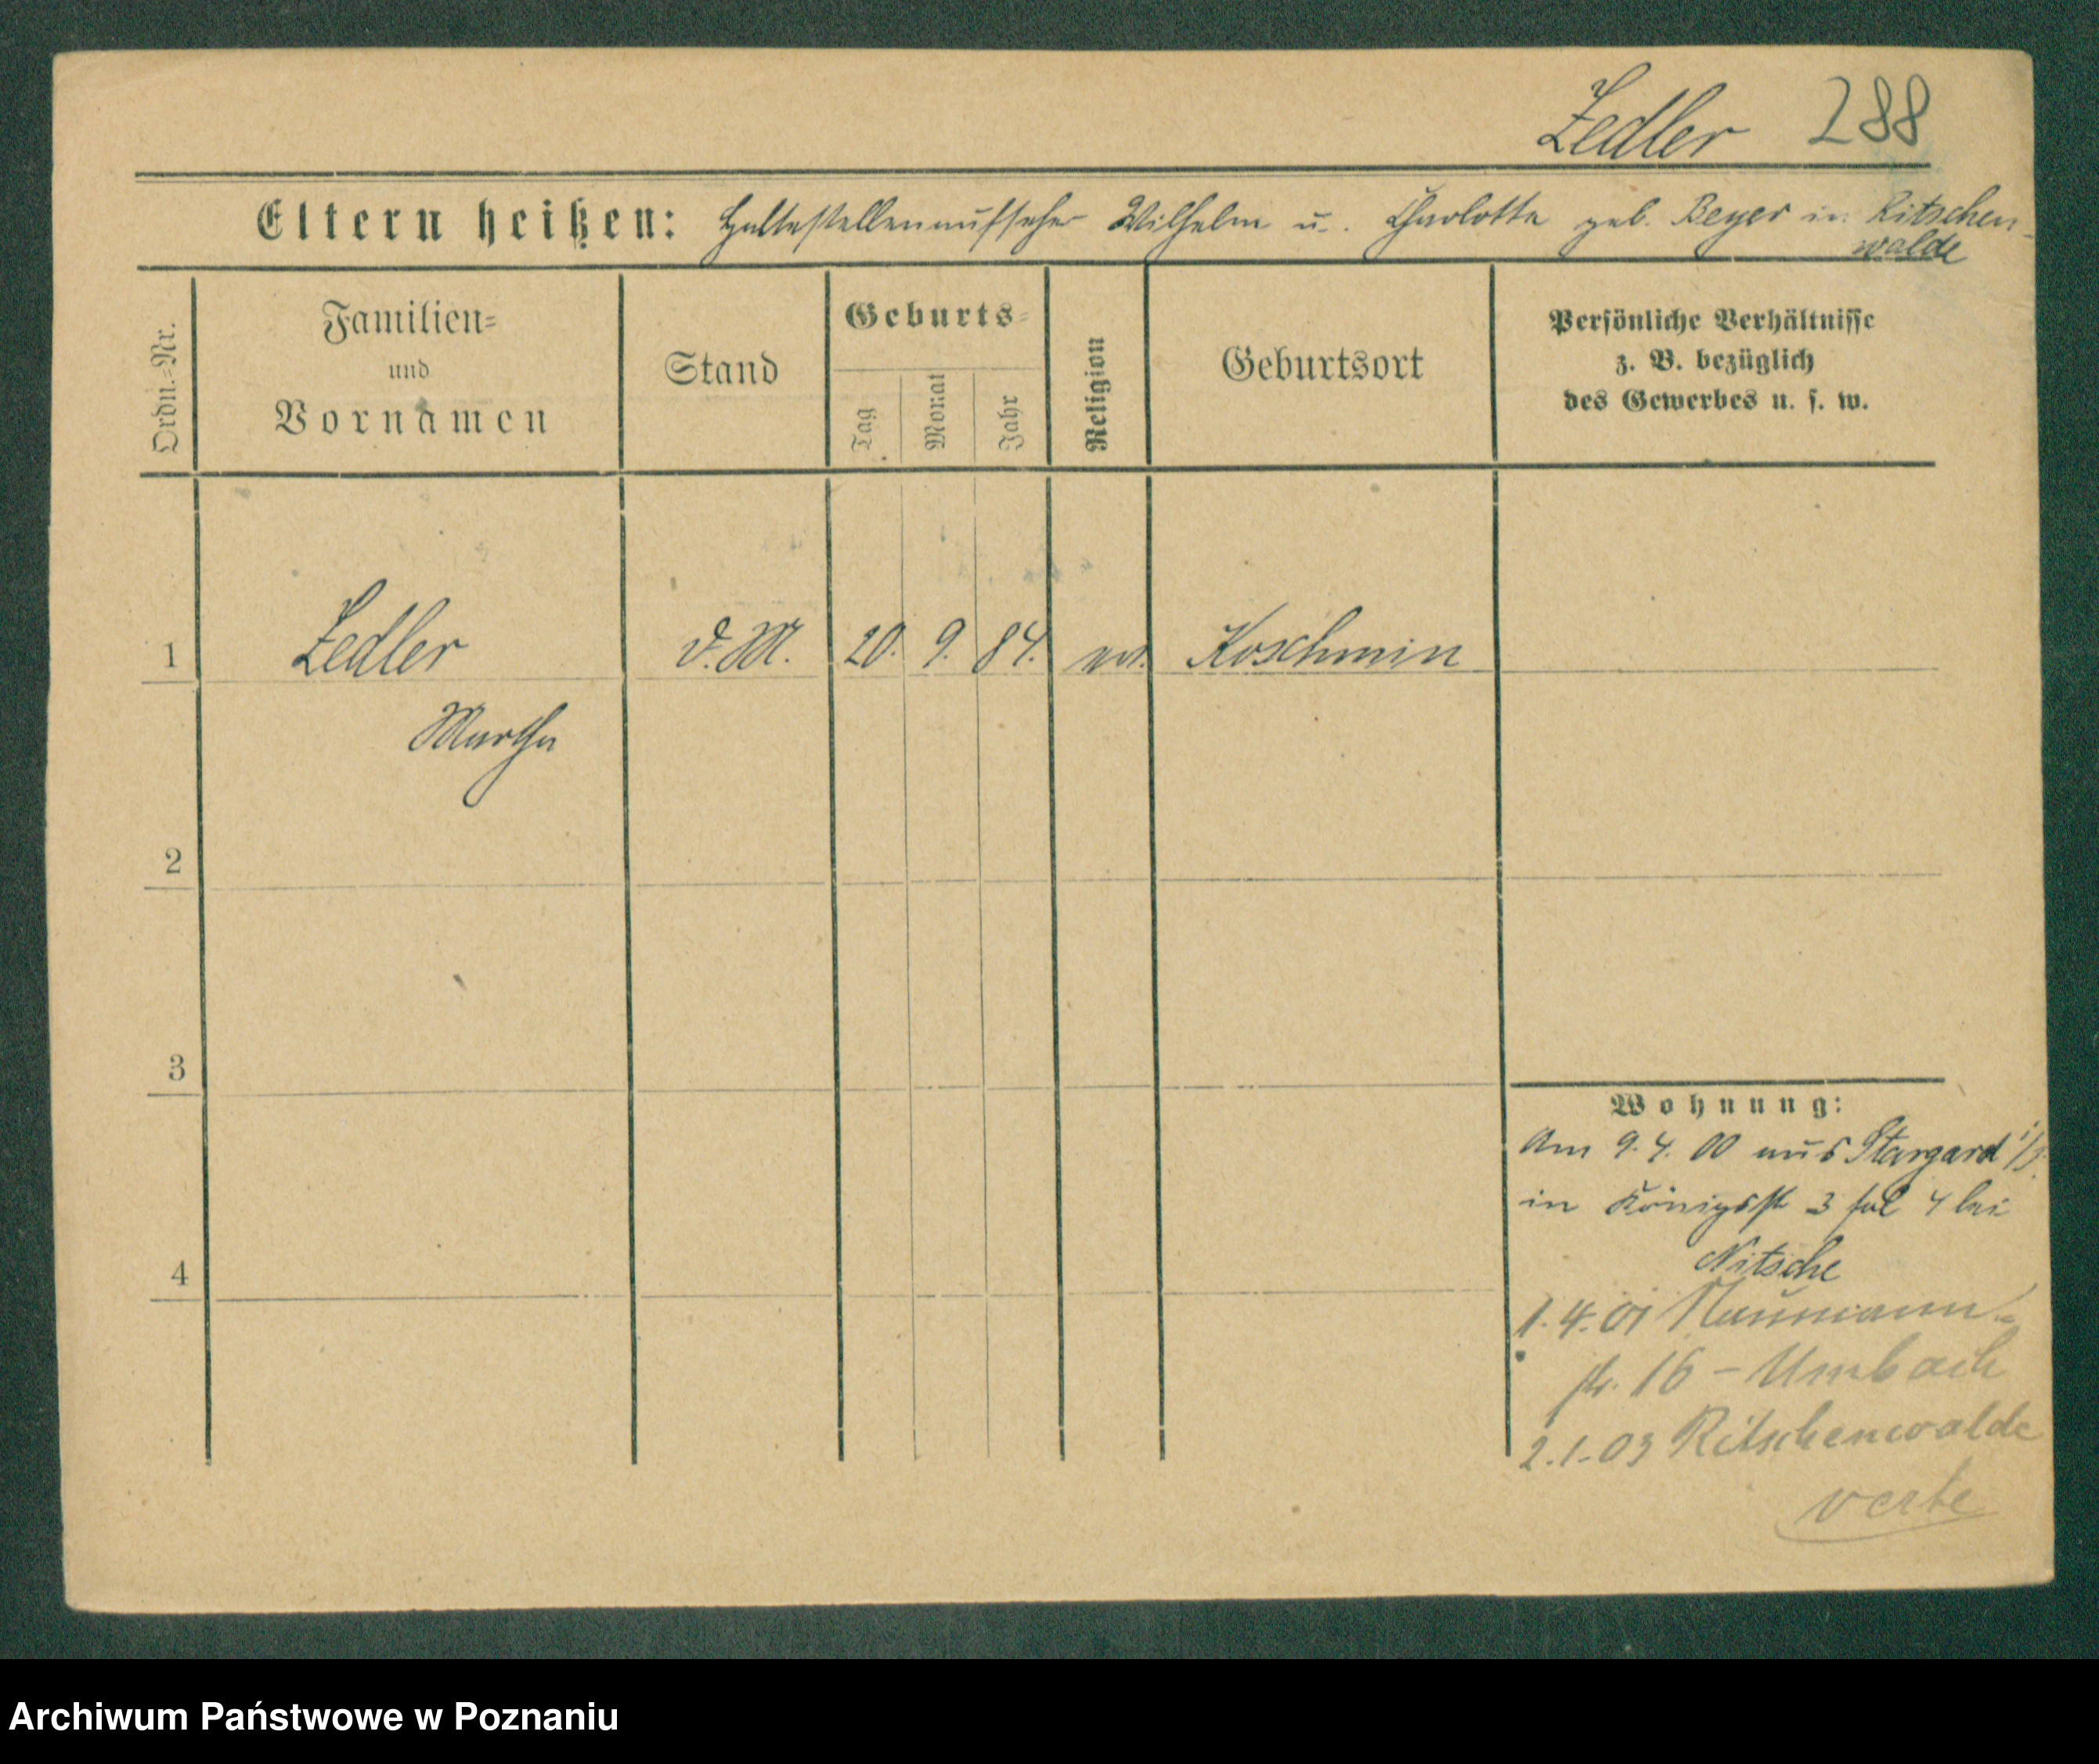 Zedler 288
Eltern heißen: Haltestellenaufseher Wilhelm u. Charlotte geb. Beyer in Ritschen-
walde
Ordn.=Nr.
Familien=
und
Vornamen
Stand
Geburts=
Tag
Monat
Jahr
Religion
Geburtsort
Persönliche Verhältnisse
z. B. bezüglich
des Gewerbes u. s. w.
1 Zedler d. M. 20. 9. 84. ev. Koschmin
Martha
2
3
4
Wohnung:
Am 9. 4. 00 aus Stargard i/P.
in Königsstr 3 bei
Nitsche
1. 4. 01 Naumann-
str. 16 – Umbach
2.1.03 Ritschenwalde
verte
Archiwum Państwowe w Poznaniu